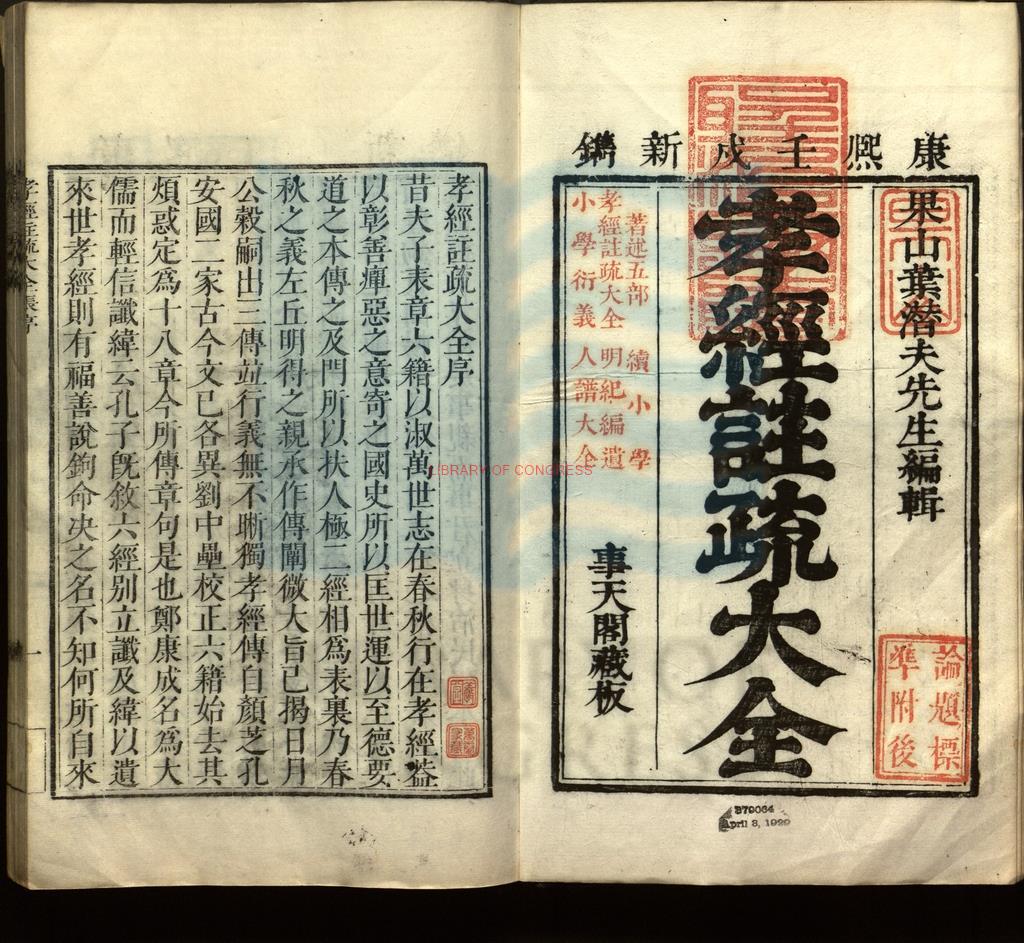 康熙壬戌新鐫
果山葉潛夫先生編輯
論題標
準附後
孝經註疏大全
著述五部 續小學
孝經註疏大全 明紀編遺
小學衍義 人譜大全
事天閣藏板
B79064
April 3, 1929
LIBRARY OF CONGRESS
孝經註疏大全序
昔夫子表章六籍以淑萬世志在春秋行在孝經葢
以彰善癉惡之意寄之國史所以匡世運以至德要
道之本傳之及門所以扶人極二經相爲表裏乃春
秋之義左丘明得之親承作傳闡微大旨已揭日月
公穀嗣出三傳竝行義無不晰獨孝經傳自顏芝孔
安國二家古今文已各異劉中壘校正六籍始去其
煩惑定爲十八章今所傳章句是也鄭康成名爲大
儒而輕信讖緯云孔子旣敘六經别立讖及緯以遺
來世孝經則有福善說鉤命决之名不知何所自來
孝經註疏大全
一